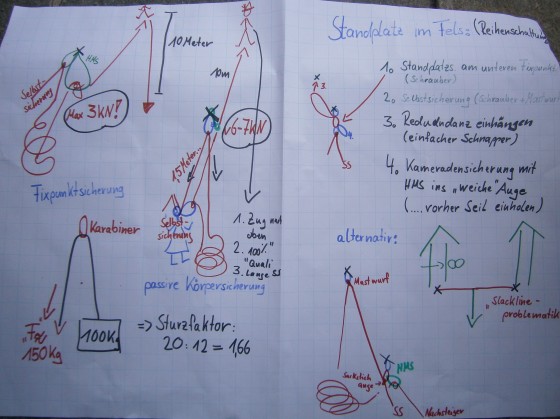 10 Meter
HMS
Selbst-
sicherung
Max 3KN!
Fixpunktsicherung
10m
6-7KN
15 Meter
Selbst-
sicherung
1. Zug nach
oben
2. 100%
"Quali"
3. Lange SS
passive Körpersicherung
Karabiner
150Kg
100K
=> Sturzfaktor:
20:12 = 1,66
Standplatz im Fels: (Reihenschaltung
1. Standplatzs. am unteren Fixpunkt
(Schrauber)
2. Selbstsicherung (Schrauber + Mastwurf
3. Redundanz einhängen
(einfacher Schnapper)
4. Kameradensicherung mit
HMS ins "weiche" Auge
(....vorher Seil einholen)
3.
4.
SS
alternativ:
Mastwurf
"Slackline-
problematik"
HMS
Sackstich
auge
SS
Nachsteiger